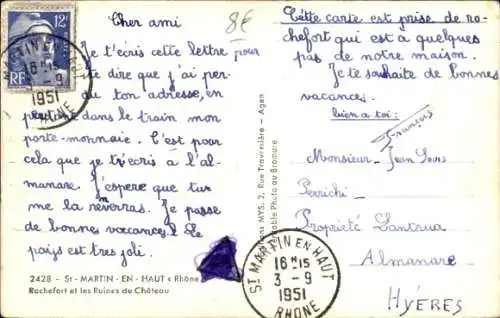 12F
RF
St MARTIN EN HAUT
16 H 15
3 - 9
1951
RHONE
Cher ami
8€
Je t'ecris cette lettre pour
te dire que j'ai per-
du ton adresse, en
pentant dans le train mon
porte-monnaie. C'est pour
cela que je t'ecris à l'al-
manare. J'espere que tu
me la reverras. Je passe
de bonnes vacances! Le
pays est tres joli.
2428 - St - MARTIN - EN - HAUT « Rhône
Rochefort et les Ruines du Château
MYS. 2, Rue Traversière - Agen
Photo au Bromure
Cette carte est prise de ro-
chefort qui est à quelques
pas de notre maison.
Je te souhaite de bonnes
vacances.
bien a toi:
François
Monsieur Jean Louis
Perrichi
Propriété Lantrua
Almanare
HYÈRES
St MARTIN EN HAUT
16 H 15
3 - 9
1951
RHONE